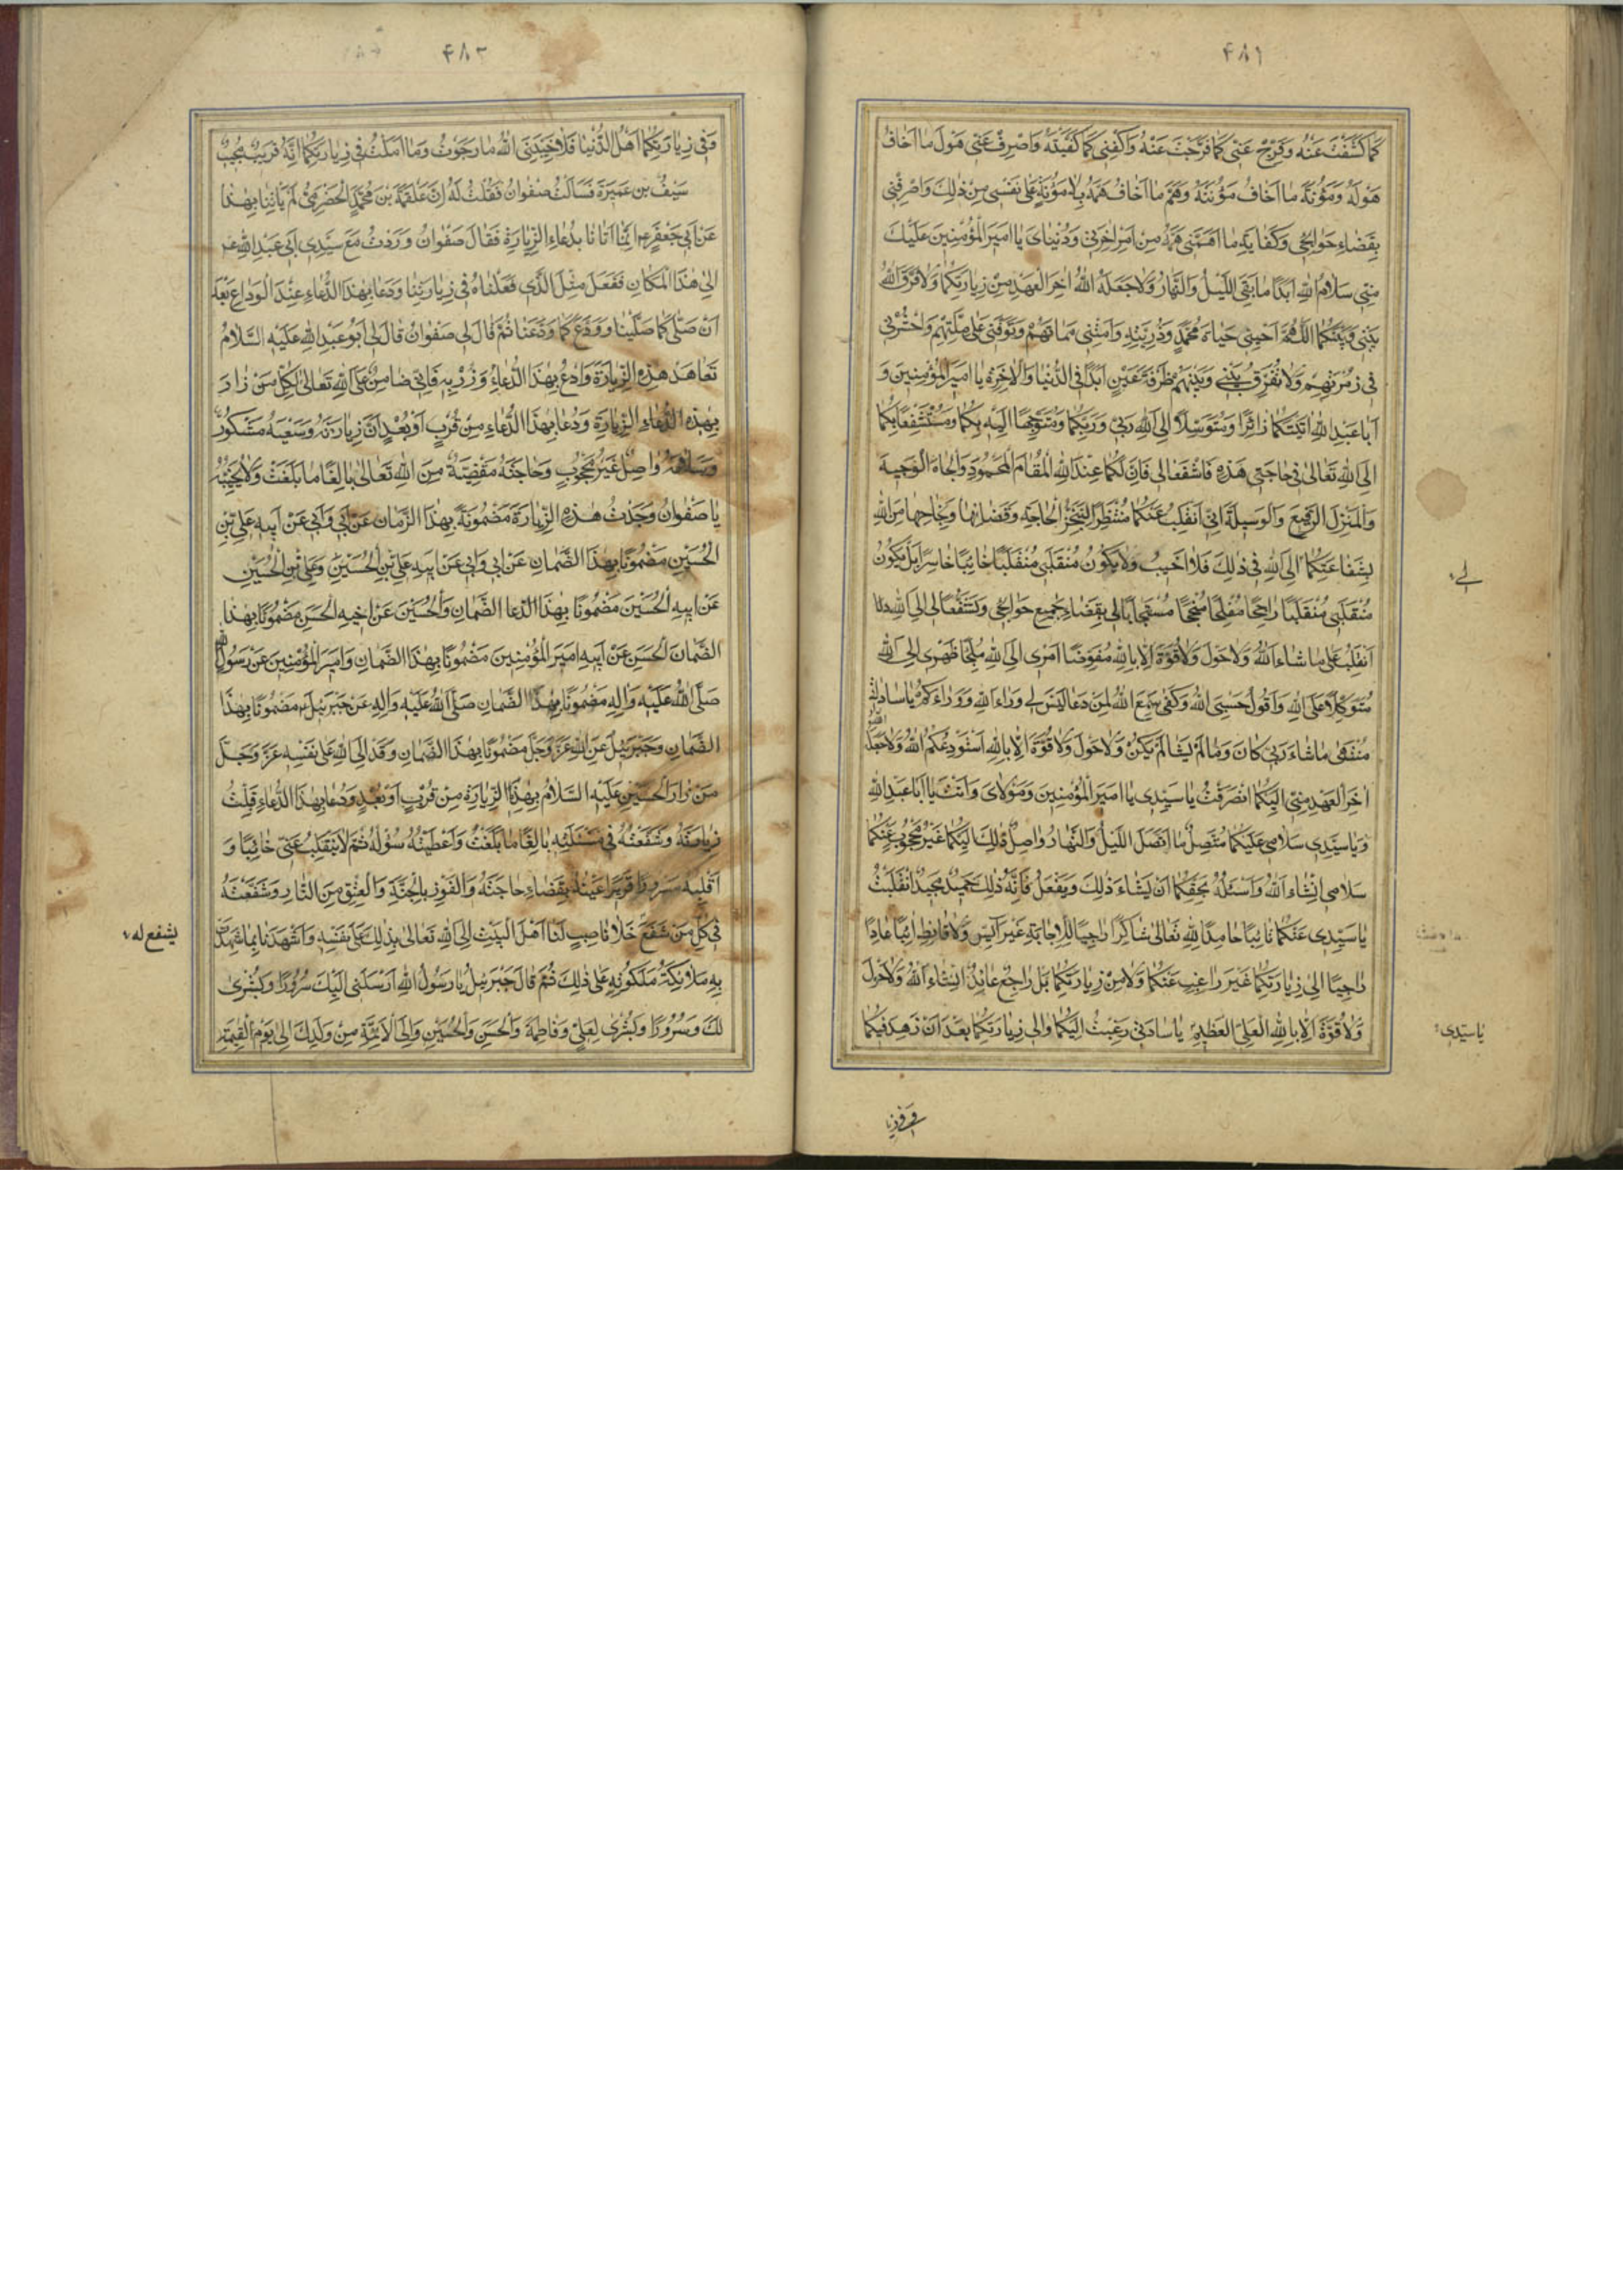 ۴۸۱
كما كشفت عنه وفرج عني كما فرجت عنه واكفني كما كفيته واصرف عني هول ما اخاف
هوله ومؤنة ما اخاف مؤنته وهم ما اخاف همه بلا مؤنة على نفسي من ذلك واصرفني
بقضاء حوائجي وكفاية ما اهمني همه من امر اخرتي ودنياي يا امير المؤمنين عليك
مني سلام الله ابدا ما بقي الليل والنهار ولا جعله الله اخر العهد من زيارتكما ولا فرق الله
بيني وبينكما اللهم احيني حياة محمد وذريته وامتني مماتهم وتوفني على ملتهم واحشرني
في زمرتهم ولا تفرق بيني وبينهم طرفة عين ابدا في الدنيا والاخرة يا امير المؤمنين و
ابا عبد الله اتيتكما زائرا ومتوسلا الى الله ربي وربكما ومتوجها اليه بكما ومستشفعا بكما
الى الله تعالى في حاجتي هذه فاشفعا لي فان لكما عند الله المقام المحمود والجاه الوجيه
والمنزل الرفيع والوسيلة اني انقلب عنكما منتظرا لتنجز الحاجة وقضائها ونجاحها من الله
بشفاعتكما الى الله في ذلك فلا اخيب ولا يكون منقلبي منقلبا خائبا خاسرا بل يكون
لي
منقلبي منقلبا راجحا مفلحا منجحا مستجابا لي بقضاء جميع حوائجي وتشفعا لي الى الله
انقلب على ما شاء الله ولا حول ولا قوة الا بالله مفوضا امري الى الله ملجأ ظهري الى الله
متوكلا على الله واقول حسبي الله وكفى سمع الله لمن دعا ليس لي وراء الله ووراءكم يا سادتي
منتهى ما شاء ربي كان وما لم يشا لم يكن ولا حول ولا قوة الا بالله استودعكم الله ولا جعله الله
اخر العهد مني اليكما انصرفت يا سيدي يا امير المؤمنين ومولاي وانت يا ابا عبد الله
ويا سيدي سلامي عليكما متصل ما اتصل الليل والنهار واصل ذلك اليكما غير محجوب عنكما
سلامي انشاء الله واسئله بحقكما ان يشاء ذلك ويفعل فانه ذلك حميد مجيد انقلبت
يا سيدي عنكما تائبا حامدا لله تعالى شاكرا راجيا للاجابة غير ايس ولا قانط ائبا عادا
راجيا الى زيارتكما غير راغب عنكما ولا من زيارتكما بل راجع عائد انشاء الله ولا حول
ولا قوة الا بالله العلي العظيم يا سادتي رغبت اليكما والى زيارتكما بعد ان زهد فيكما
يا سيدي
۴۸۲
وفي زيارتكما اهل الدنيا فلا خيبني الله ما رجوت وما املت في زيارتكما انه قريب مجيب
سيف بن عميرة فسالت صفوان فقلت له ان علقمة بن محمد الحضرمي لم ياتنا بهذا
عن ابي جعفر ع انما اتانا بدعاء الزيارة فقال صفوان وردت مع سيدي ابي عبد الله ع
الى هذا المكان ففعل مثل الذي فعلناه في زيارتنا ودعا بهذا الدعاء عند الوداع بعد
ان صلى كما صلينا وودع كما ودعنا ثم قال لي صفوان قال لي ابو عبد الله عليه السلام
تعاهد هذه الزيارة وادع بهذا الدعاء وزر به فاني ضامن على الله تعالى لكل من زار
بهذه الزيارة ودعا بهذا الدعاء من قرب او بعد ان زيارته وسعيه مشكور
وسلامه واصل غير محجوب وحاجته مقضية من الله تعالى بالغا ما بلغت ولا يخيبه
يا صفوان وجدت هذه الزيارة مضمونة بهذا الزمان عن ابي وابي عن ابيه علي بن
الحسين مضمونا بهذا الضمان عن ابي وابي عن ابيه علي بن الحسين وعلي بن الحسين
عن ابيه الحسين مضمونا بهذا الدعا الضمان والحسين عن اخيه الحسن مضمونا بهذا
الضمان الحسن عن ابيه امير المؤمنين مضمونا بهذا الضمان وامير المؤمنين عن رسول الله
صلى الله عليه واله مضمونا بهذا الضمان صلى الله عليه واله عن جبرئيل مضمونا بهذا
الضمان وجبرئيل عن الله عز وجل مضمونا بهذا الضمان وقد الى الله على نفسه عز وجل
من زار الحسين عليه السلام بهذا الزيارة من قرب او بعد ودعا بهذا الدعاء قبلت
زيارته وشفعته في مسئلته بالغا ما بلغت واعطيته سؤله ثم لا ينقلب عني خائبا و
اقلبه مسرورا قريرا عينه بقضاء حاجته والفوز بالجنة والعتق من النار وشفعته
في كل من شفع خلا ناصب لنا اهل البيت الى الله تعالى بذلك على نفسه واشهدنا بما شهدت
يشفع له
به ملائكة ملكوته على ذلك ثم قال جبرئيل يا رسول الله ارسلني اليك سرورا وبشرى
لك وسرورا وبشرى لعلي وفاطمة والحسن والحسين والى الائمة من ولدك الى يوم القيمة